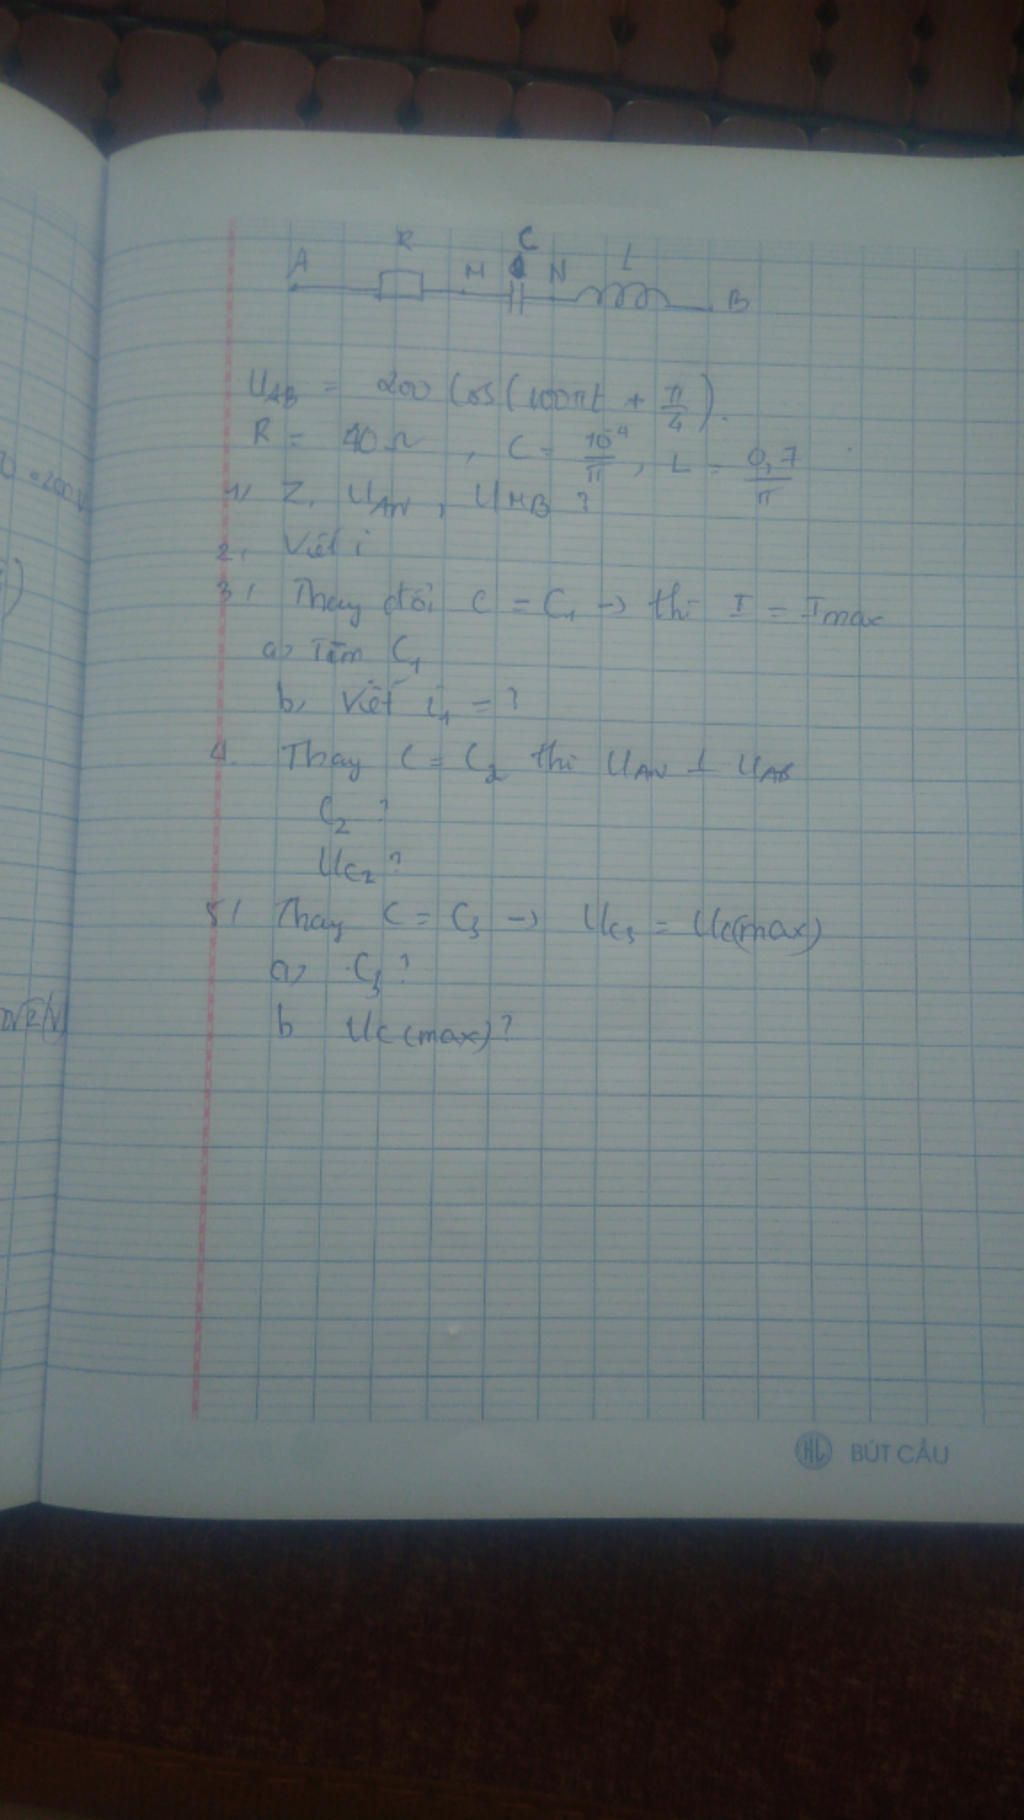 R C L
A M N B
U_AB = 200 Cos(100πt + π/4).
R = 40Ω, C = 10^-4/π, L = 0,7/π
1, Z, U_AN, U_MB ?
2, Viết i
3, Thay đổi C = C1 → thì I = Imax
a> Tìm C1
b, Viết i1 = ?
4. Thay C = C2 thì U_AN ⊥ U_AB
C2 ?
U_C2 ?
5, Thay C = C3 → U_C3 = U_C(max)
a> C3 ?
b U_C(max) ?
HL BÚT CẦU